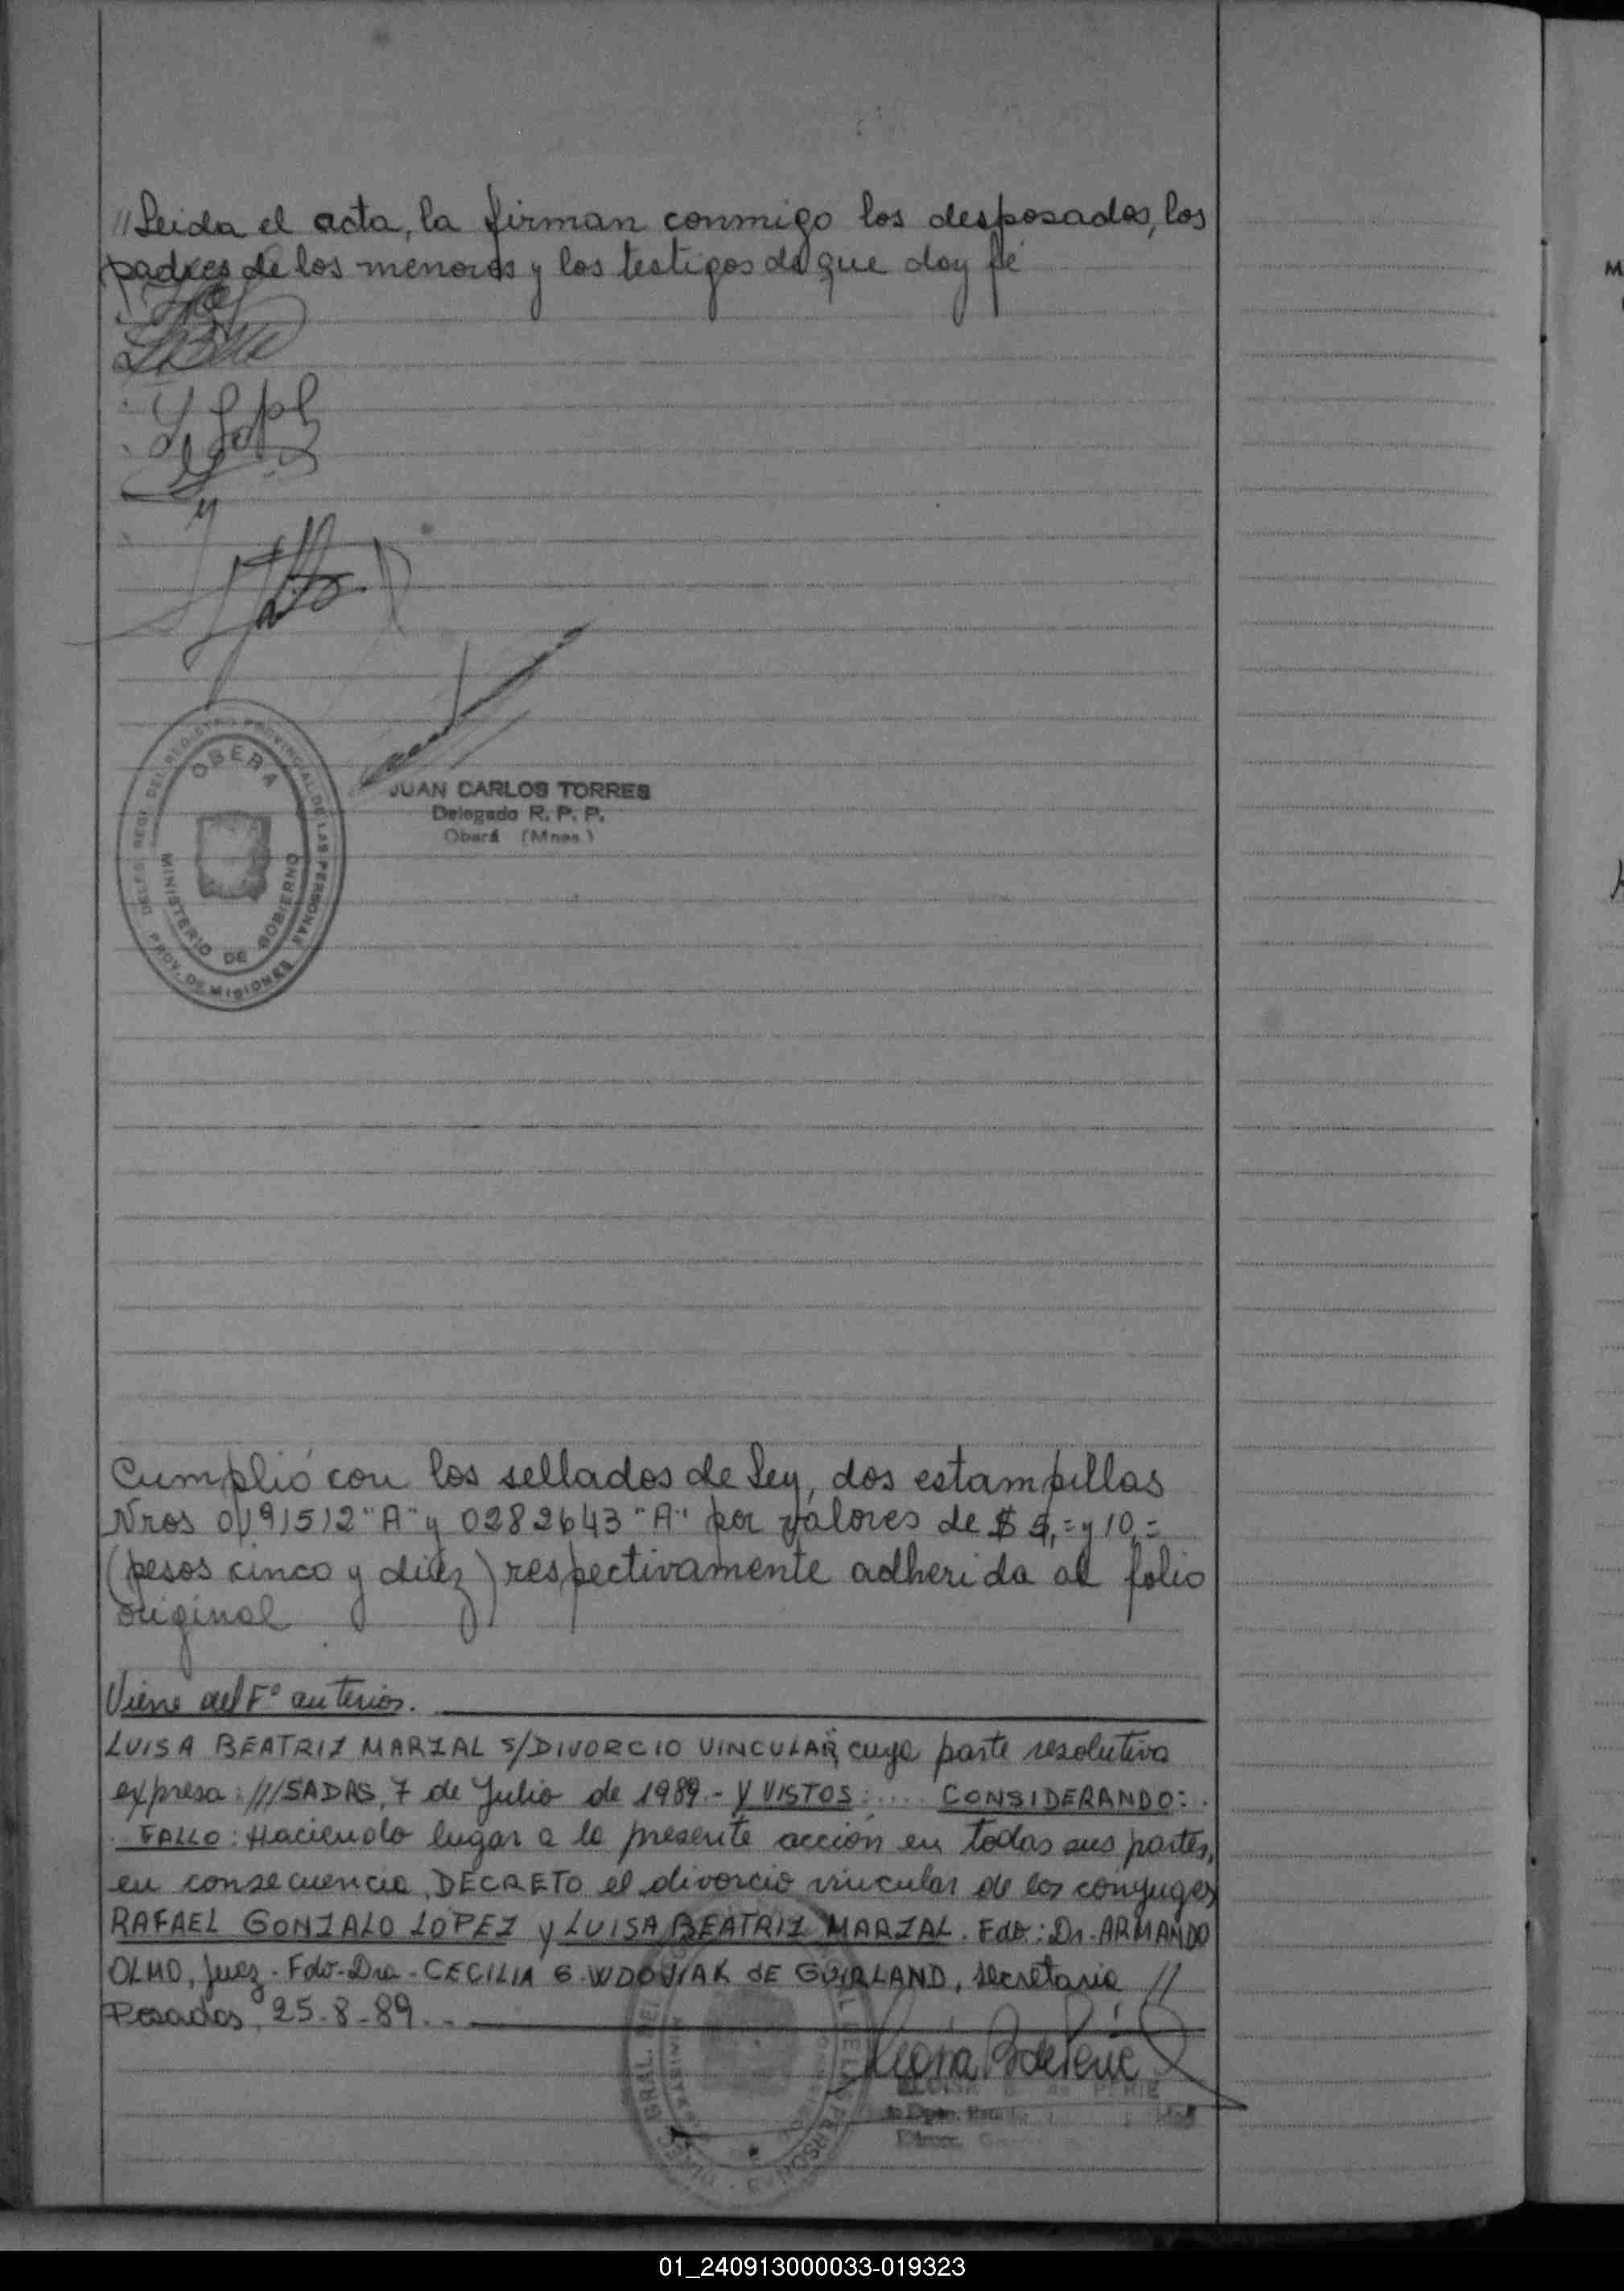 // Leida el acta, la firman conmigo los desposados, los
padres de los menores y los testigos de que doy fé
OBERA
DEL REGISTRO PROVINCIAL DE LAS PERSONAS
MINISTERIO DE GOBIERNO
PROV. DE MISIONES
JUAN CARLOS TORRES
Delegado R. P. P.
Oberá (Mnes.)
Cumplió con los sellados de Ley, dos estampillas
Nros 0191512 "A" y 0282643 "A" por valores de $ 5,= y 10,=
(pesos cinco y diez) respectivamente adherida al folio
original
Viene del Fº anterior.
LUISA BEATRIZ MARZAL S/DIVORCIO VINCULAR, cuya parte resolutiva
expresa: ///SADAS, 7 de Julio de 1989.- Y VISTOS: .... CONSIDERANDO: .
FALLO: Haciendo lugar a la presente acción en todas sus partes,
en consecuencia, DECRETO el divorcio vincular de los cónyuges
RAFAEL GONZALO LOPEZ y LUISA BEATRIZ MARZAL. Fdo: Dr. ARMANDO
OLMO, Juez - Fdo- Dra - CECILIA G. WDOVIAK de GUIRLAND, secretaria //
Posadas, 25-8-89. -
M
01_240913000033-019323